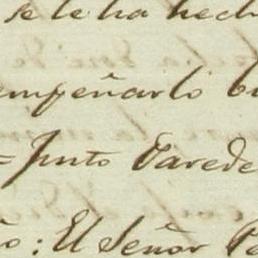 se le ha hech
empeñarlo b
= Justo Parede
o: El Señor Pe